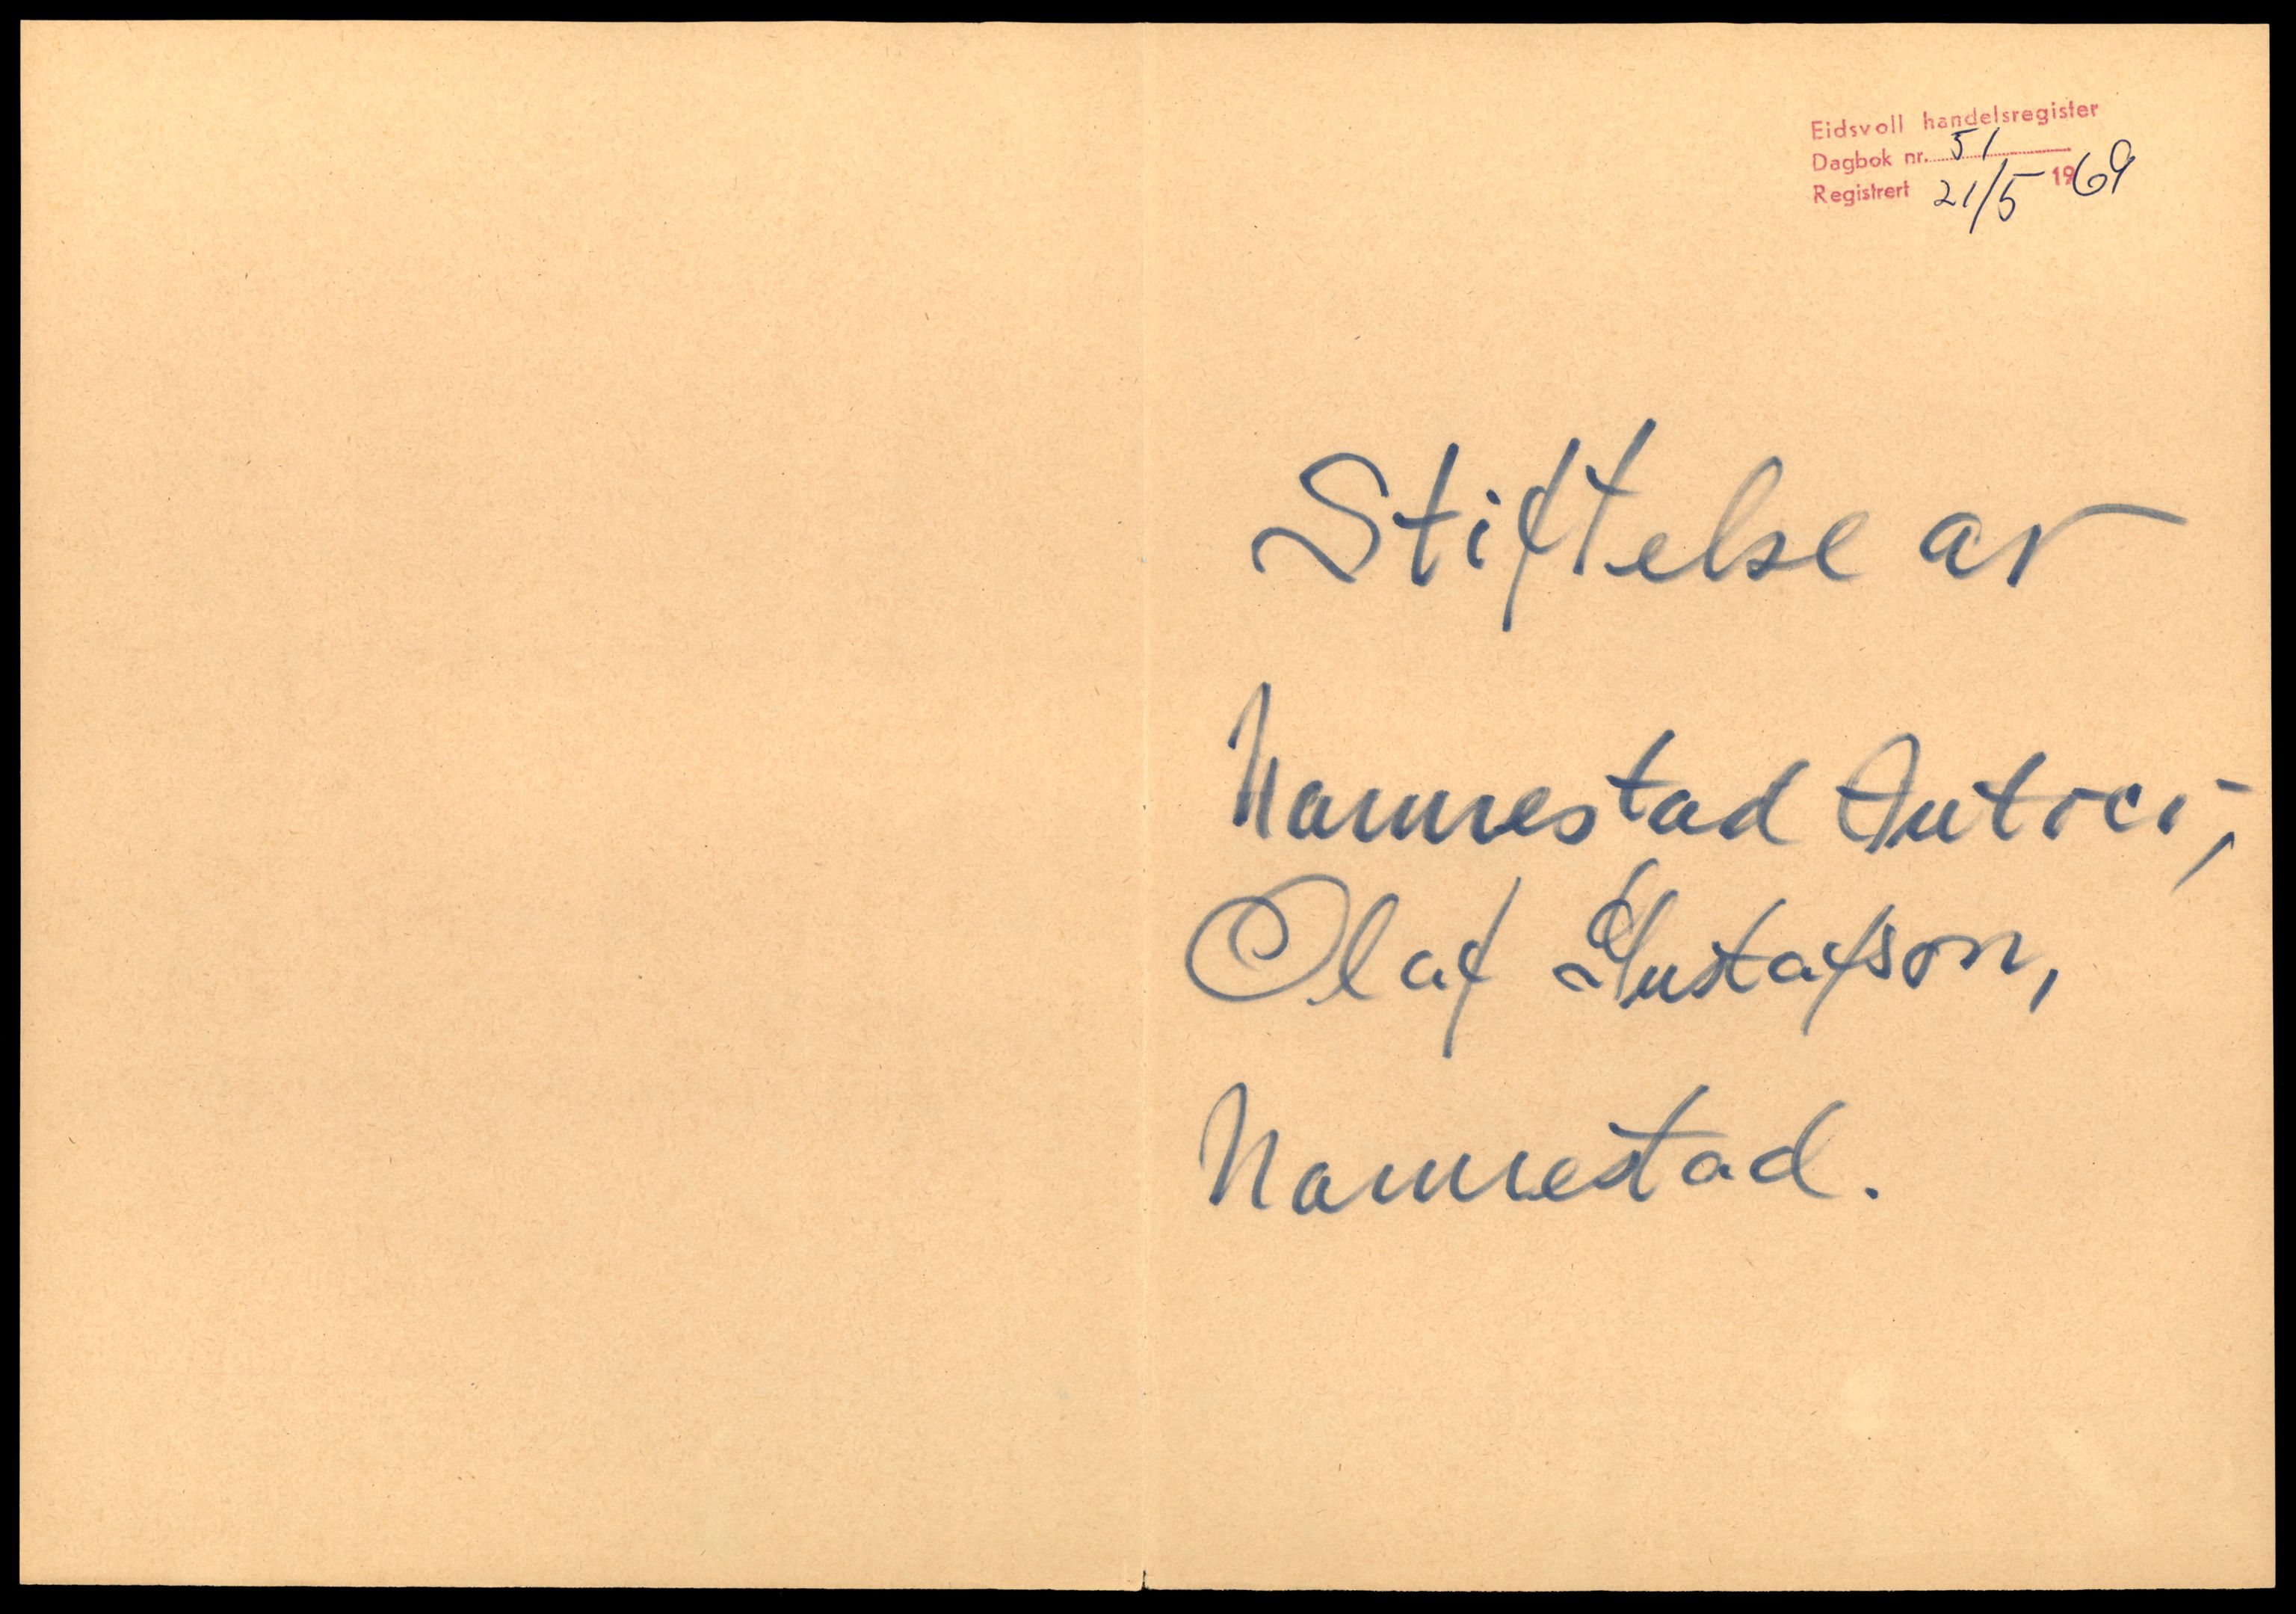 Eidsvoll handelsregister
Dagbok nr. 51
Registrert 21/5 1969
Stiftelse av
Nannestad
Olaf Gustafson,
Nannestad.